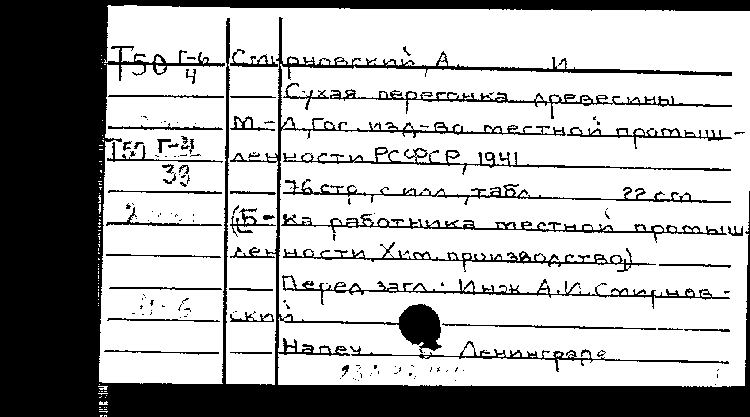 Т50 Г-6/4 Смирновский, А. И.
Сухая перегонка древесины.
М.-Л., Гос. изд-во местной промыш-
Т50 Г-31/39 ленности РСФСР, 1941.
76 стр., с илл., табл. 22 см.
(Б-ка работника местной промыш-
ленности. Хим. производство)
Перед загл.: Инж А.И. Смирнов-
ский.
Напеч. в Ленинграде